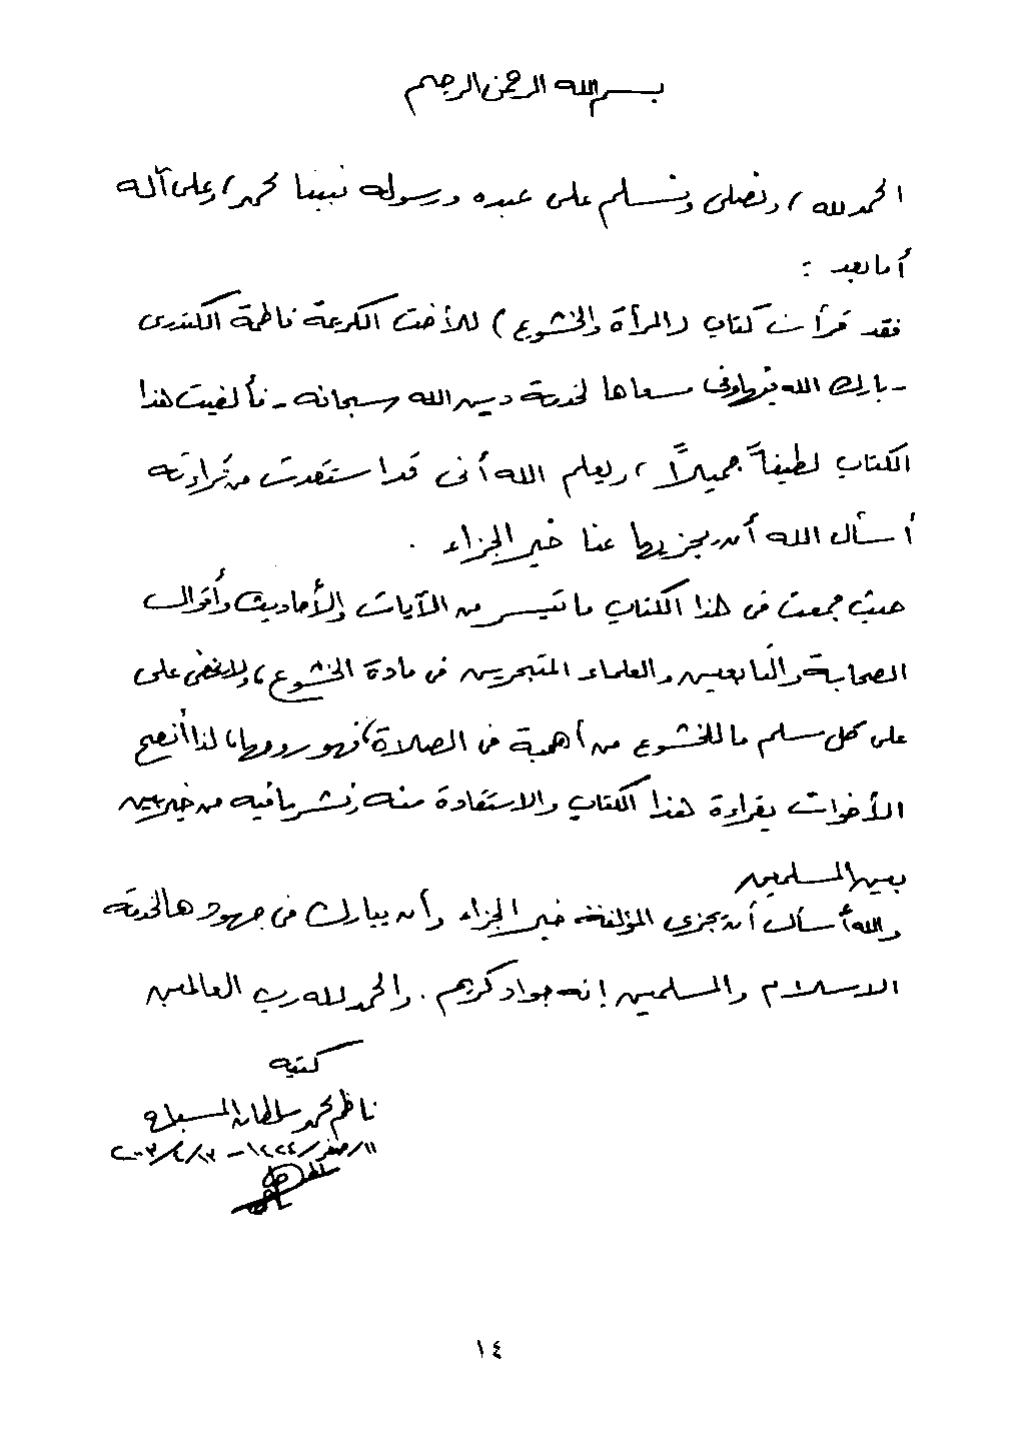 بسم الله الرحمن الرحيم
الحمد لله ، ونصلي ونسلم على عبده ورسوله نبينا محمد ، وعلى آله
أما بعد :
فقد قرأت كتاب ( المرأة والخشوع ) للأخت الكريمة فاطمة الكندري
- بارك الله فيها وفي مسعاها لخدمة دين الله سبحانه - فألفيت هذا
الكتاب لطيفاً جميلاً ، ويعلم الله أني قد استفدت من قراءته
أسأل الله أن يجزيها عنا خير الجزاء .
حيث جمعت في هذا الكتاب ما تيسر من الآيات والأحاديث وأقوال
الصحابة والتابعين والعلماء المتبحرين في مادة الخشوع ، ولا يخفى على
على كل مسلم ما للخشوع من أهمية في الصلاة ، فهو روحها ، لذا أنصح
الأخوات بقراءة هذا الكتاب والاستفادة منه ونشر ما فيه من خير بين
بين المسلمين
والله أسأل أن يجزي المؤلفة خير الجزاء وأن يبارك في جهودها لخدمة
الاسلام والمسلمين إنه جواد كريم . والحمد لله رب العالمين
كتبه
ناظم محمد سلطان المسباح
١١/صفر/١٤٢٤ - ١٣/٤/٢٠٠٣
١٤